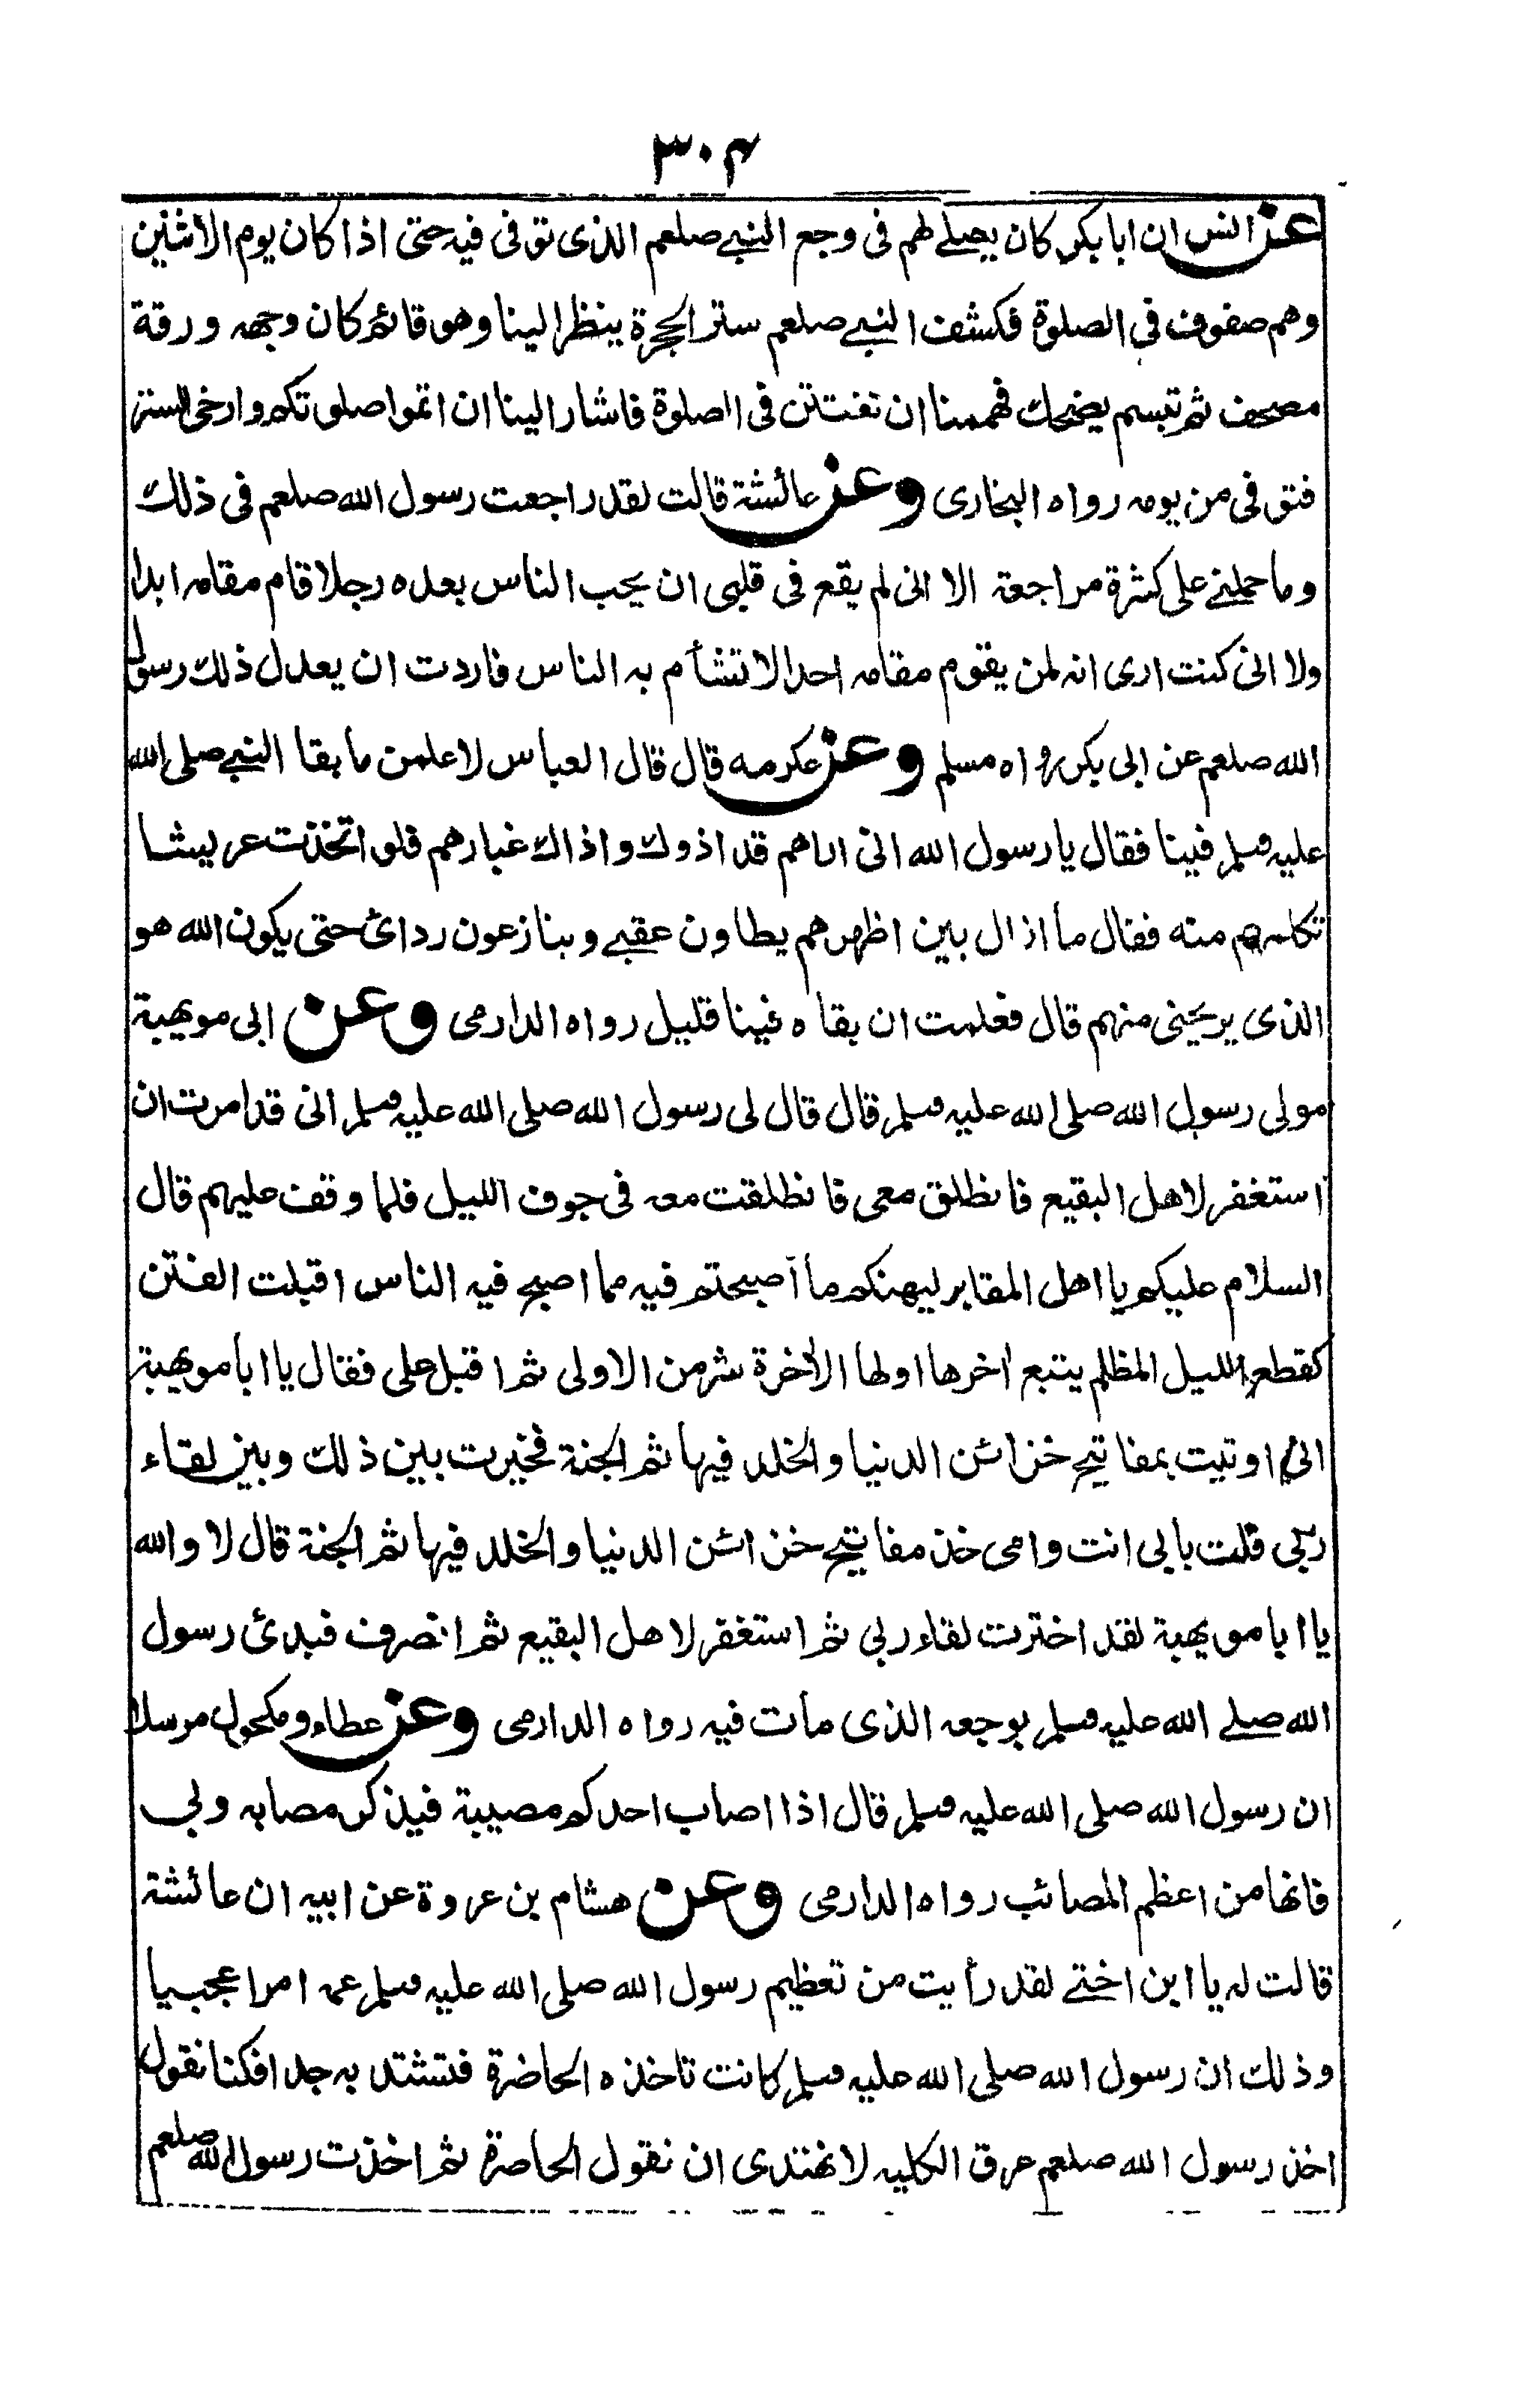 ٣٠٤
عن انس ان ابا بكر كان يصلے لهم فى وجع النبے صلعم الذى توفى فيه حتى اذا كان يوم الاثنين
وهم صفوف فى الصلوة فكشف النبے صلعم ستر الحجرة ينظر الينا وهو قائم كان وجهه ورقة
مصحف ثم تبسم يضحك فهممنا ان نفتتن فى الصلوة فاشار الينا ان اتموا صلوتكم وارخى الستر
فتوفى من يومه رواه البخارى وعن عائشة قالت لقد راجعت رسول الله صلعم فى ذلك
وما حملنے على كثرة مراجعة الا انى لم يقع فى قلبى ان يحب الناس بعده رجلا قام مقامه ابدا
ولا انى كنت ارى انه لمن يقوم مقامه احد الا تشأم به الناس فاردت ان يعدل ذلك رسول
الله صلعم عن ابى بكر رواه مسلم وعن عكرمه قال قال العباس لاعلمن ما بقا النبے صلى الله
عليه وسلم فينا فقال يا رسول الله انى اراهم قد اذوك واذاك غبارهم فلو اتخذت عريشا
تكلمهم منه فقال ما ازال بين اظهرهم يطاون عقبے وينازعون ردائ حتى يكون الله هو
الذى يريحنى منهم قال فعلمت ان بقاه فينا قليل رواه الدارمى وعن ابى مويهبة
مولى رسول الله صلى الله عليه وسلم قال قال لى رسول الله صلى الله عليه وسلم انى قد امرت ان
استغفر لاهل البقيع فانطلق معى فانطلقت معه فى جوف الليل فلما وقف عليهم قال
السلام عليكم يا اهل المقابر ليهنكم ما اصبحتم فيه مما اصبح فيه الناس اقبلت الفتن
كقطع الليل المظلم يتبع اخرها اولها الاخرة شر من الاولى ثم اقبل على فقال يا ابا مويهبة
انى اوتيت بمفاتيح خزائن الدنيا والخلد فيها ثم الجنة فخيرت بين ذلك وبين لقاء
ربى قلت بابى انت وامى خذ مفاتيح خزائن الدنيا والخلد فيها ثم الجنة قال لا والله
يا ابا مويهبة لقد اخترت لقاء ربى ثم استغفر لاهل البقيع ثم انصرف فبدئ رسول
الله صلے الله عليه وسلم بوجعه الذى مات فيه رواه الدارمى وعن عطاء ومكحول مرسلا
ان رسول الله صلى الله عليه وسلم قال اذا اصاب احدكم مصيبة فيذكر مصابه ولى
فانها من اعظم المصائب رواه الدارمى وعن هشام بن عروة عن ابيه ان عائشة
قالت له يا ابن اختے لقد رأيت من تعظيم رسول الله صلى الله عليه وسلم عمه امرا عجيبا
وذلك ان رسول الله صلى الله عليه وسلم كانت تاخذه الحاضرة فتشتد به جدا فكنا نقول
اخذ رسول الله صلعم عرق الكليه لا نهتدى ان نقول الحاصرة ثم اخذت رسول الله صلعم